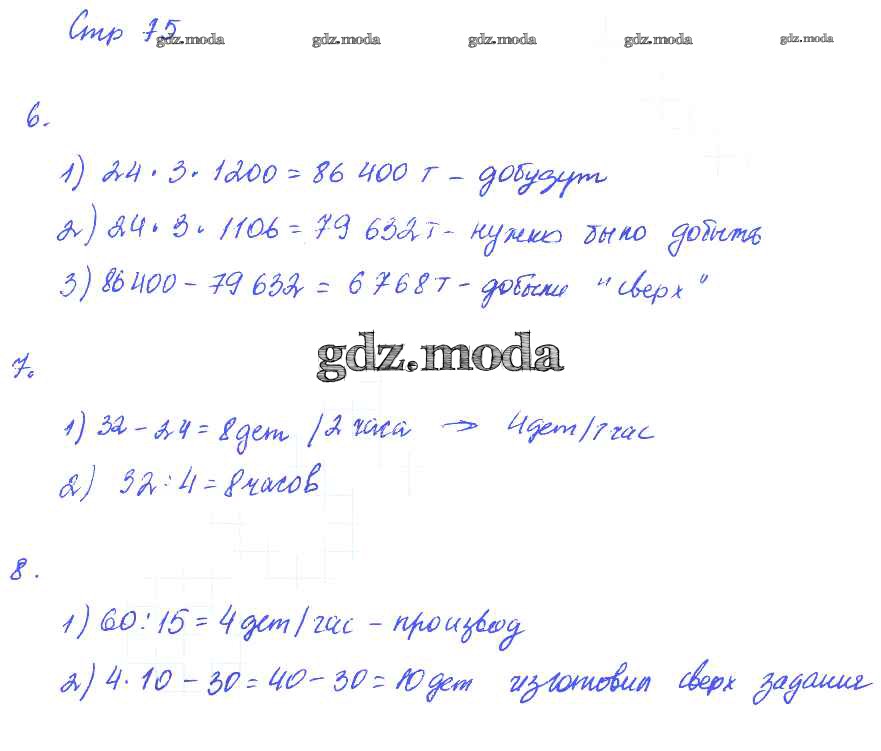 Стр 75
gdz.moda gdz.moda gdz.moda gdz.moda gdz.moda
6.
1) 24 · 3 · 1200 = 86 400 т – добудут
2) 24 · 3 · 1106 = 79 632 т – нужно было добыть
3) 86400 – 79 632 = 6 768 т – добыли "сверх"
gdz.moda
7.
1) 32 – 24 = 8 дет / 2 часа → 4 дет / 1 час
2) 32 : 4 = 8 часов
8.
1) 60 : 15 = 4 дет / час – производ
2) 4 · 10 – 30 = 40 – 30 = 10 дет изготовил сверх задания